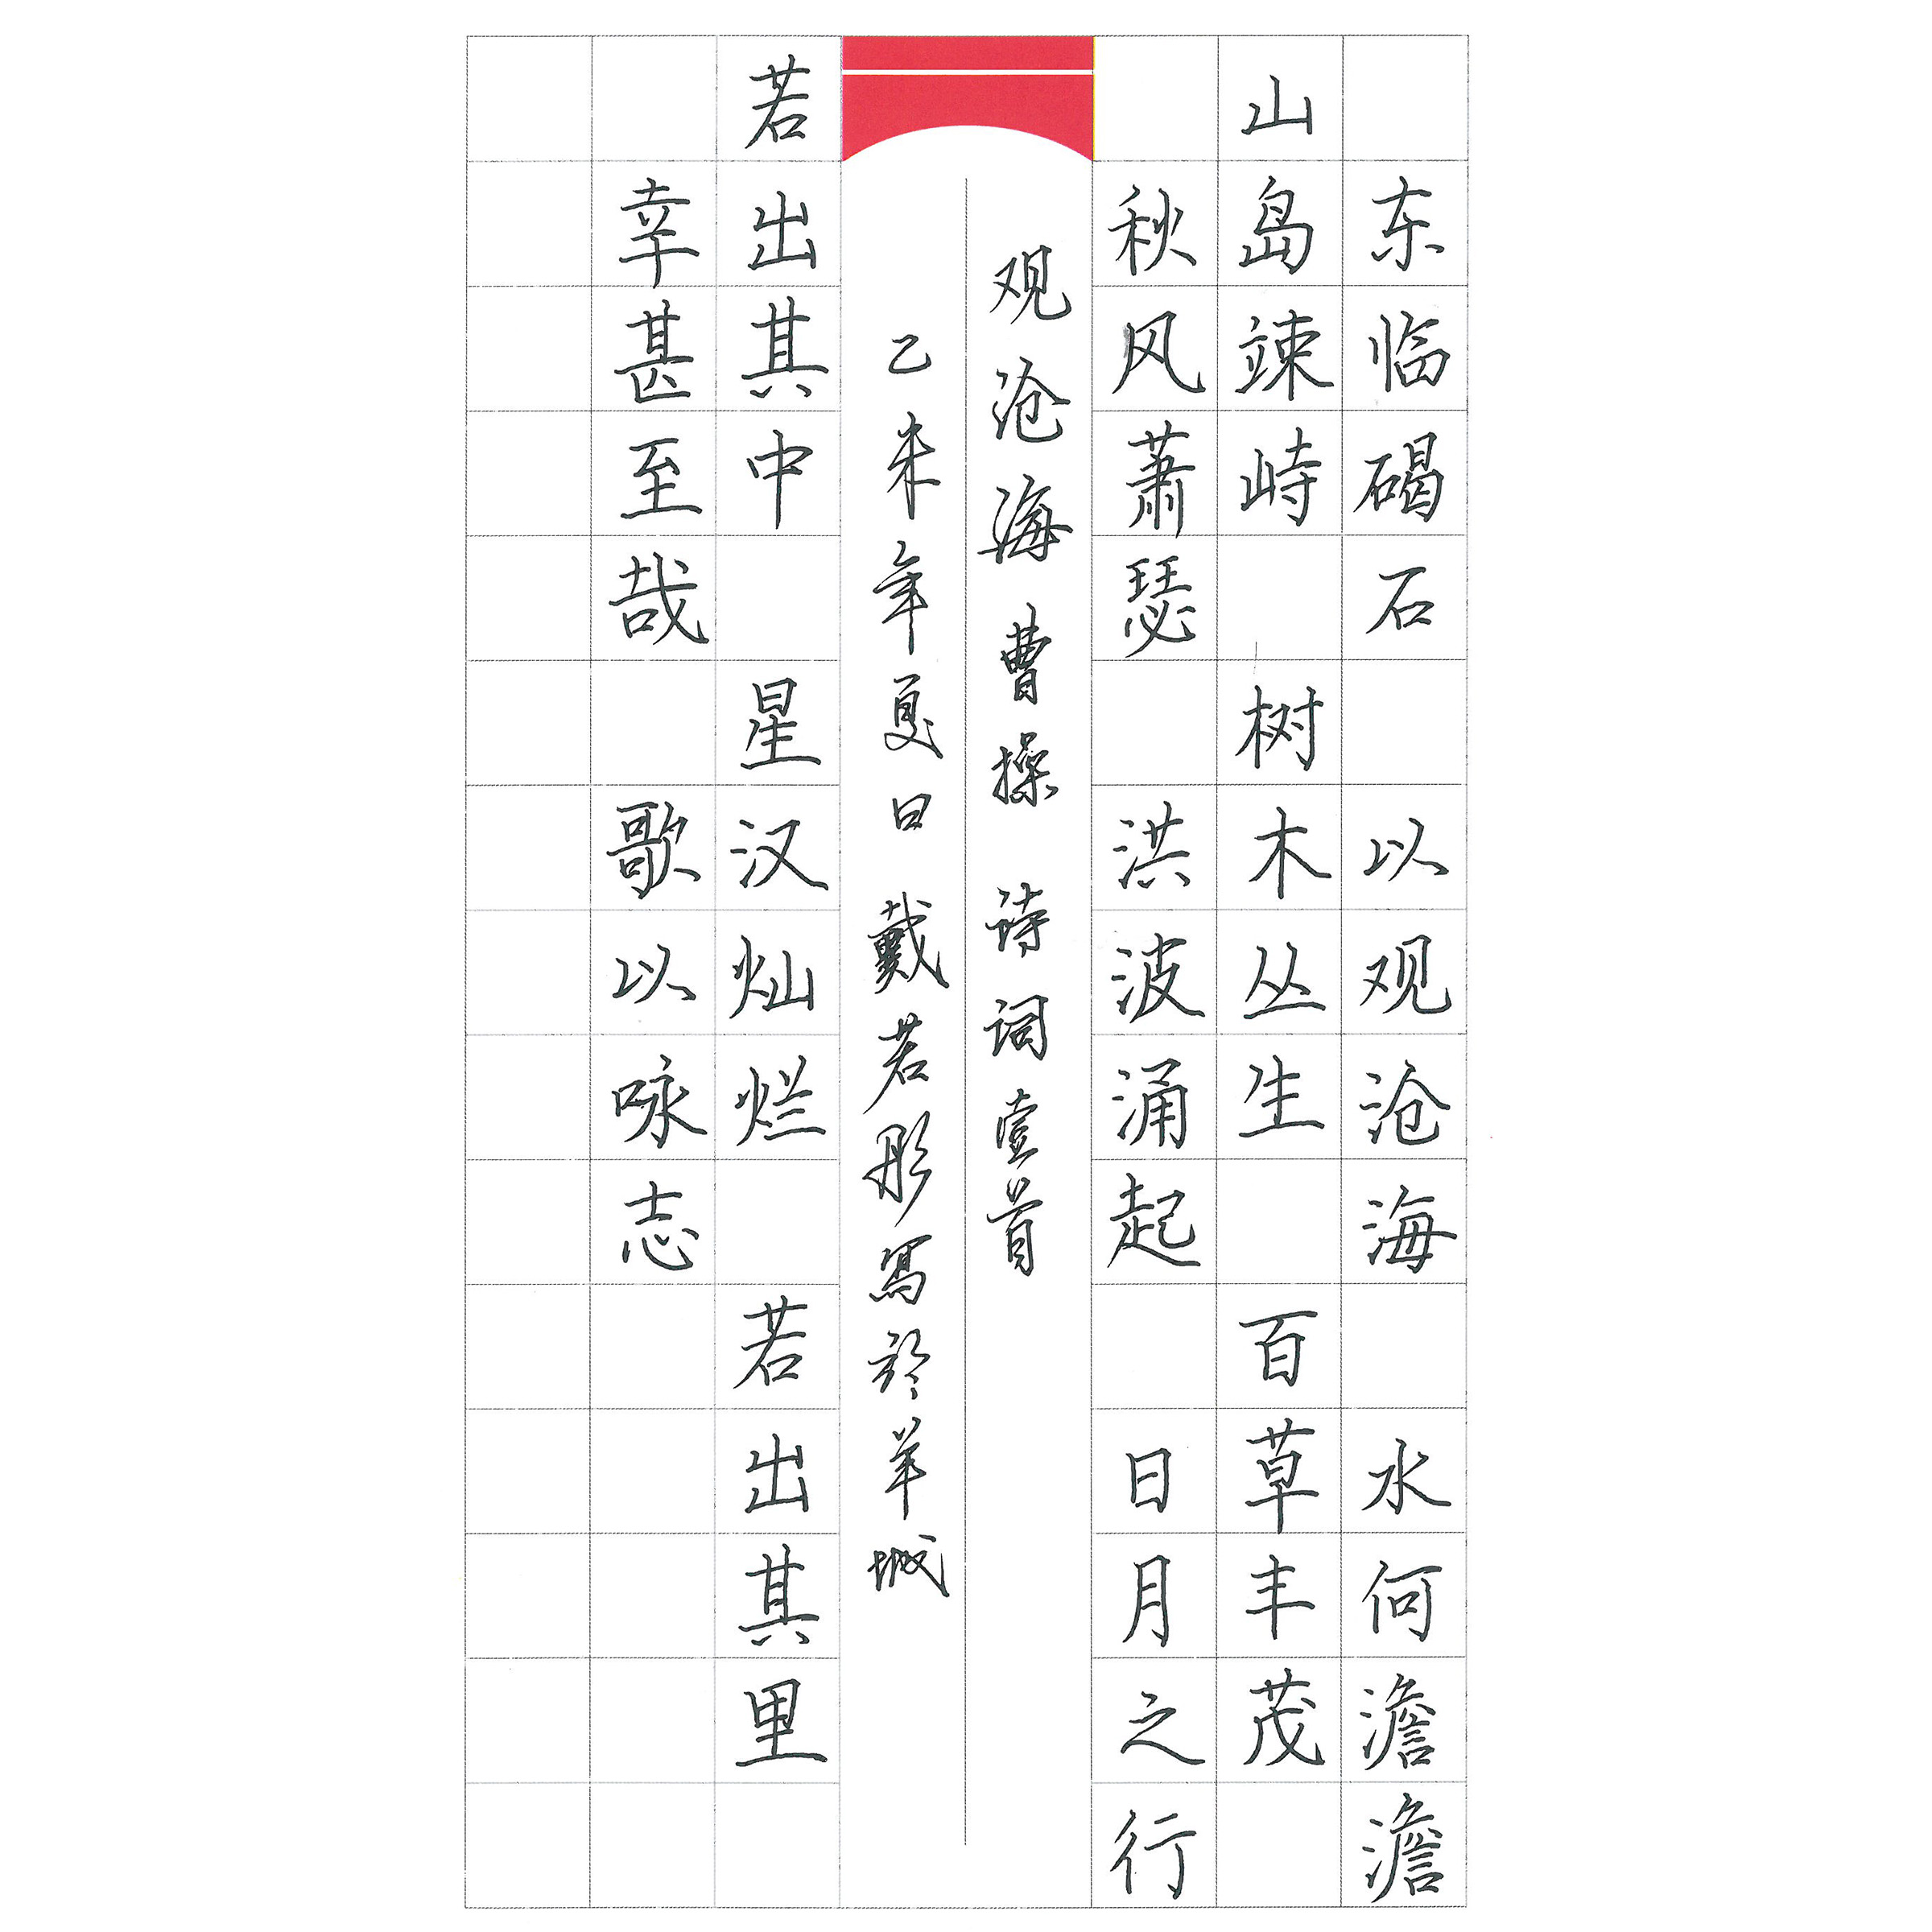 东临碣石 以观沧海 水何澹澹
山岛竦峙 树木丛生 百草丰茂
秋风萧瑟 洪波涌起 日月之行
观沧海 曹操 诗词壹首
乙未年夏日 戴若彤写於羊城
若出其中 星汉灿烂 若出其里
幸甚至哉 歌以咏志